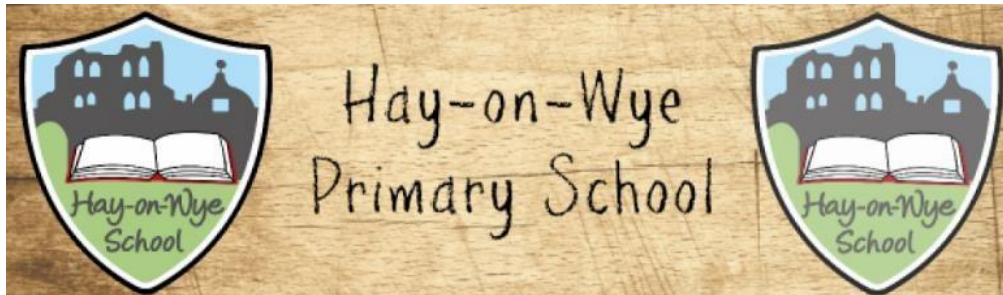 Hay-on-Wye
School
Hay-on-Wye
Primary School
Hay-on-Wye
School